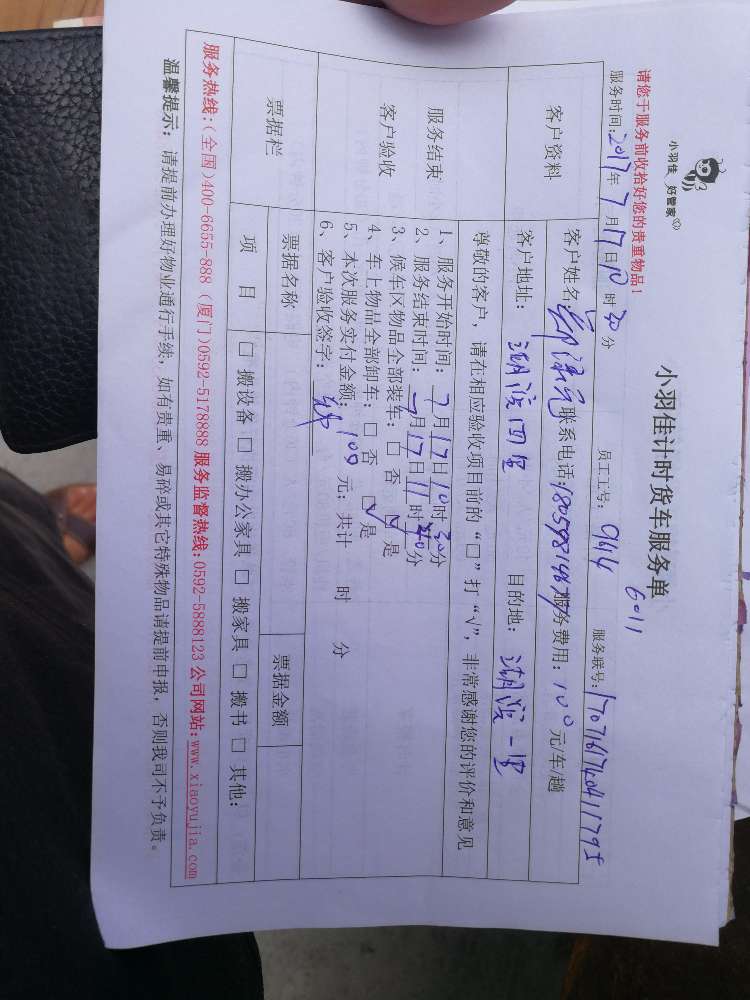 小羽佳 好管家
小羽佳计时货车服务单
6011
请您于服务前收拾好您的贵重物品！
服务时间：2017年7月17日10时30分 员工工号：9614 服务联号：
客户资料
客户姓名： 联系电话： 服务费用：100元/车/趟
客户地址：湖滨四里 目的地：湖滨一里
尊敬的客户，请在相应验收项目前的“□”打“√”，非常感谢您的评价和意见
服务结束
客户验收
1、服务开始时间：7月17日10时30分
2、服务结束时间：7月17日11时40分
3、候车区物品全部装车：□ 否 ☑ 是
4、车上物品全部卸车：□ 否 ☑ 是
5、本次服务实付金额：100元；共计 时 分
6、客户验收签字：
票据栏
票据名称 票据金额
项 目 □ 搬设备 □ 搬办公家具 □ 搬家具 □ 搬书 □ 其他：
服务热线：(全国)400-6655-888 (厦门)0592-5178888 服务监督热线：0592-5888123 公司网站：www.xiaoyujia.com
温馨提示：请提前办理好物业通行手续，如有贵重、易碎或其它特殊物品请提前申报，否则我司不予负责。